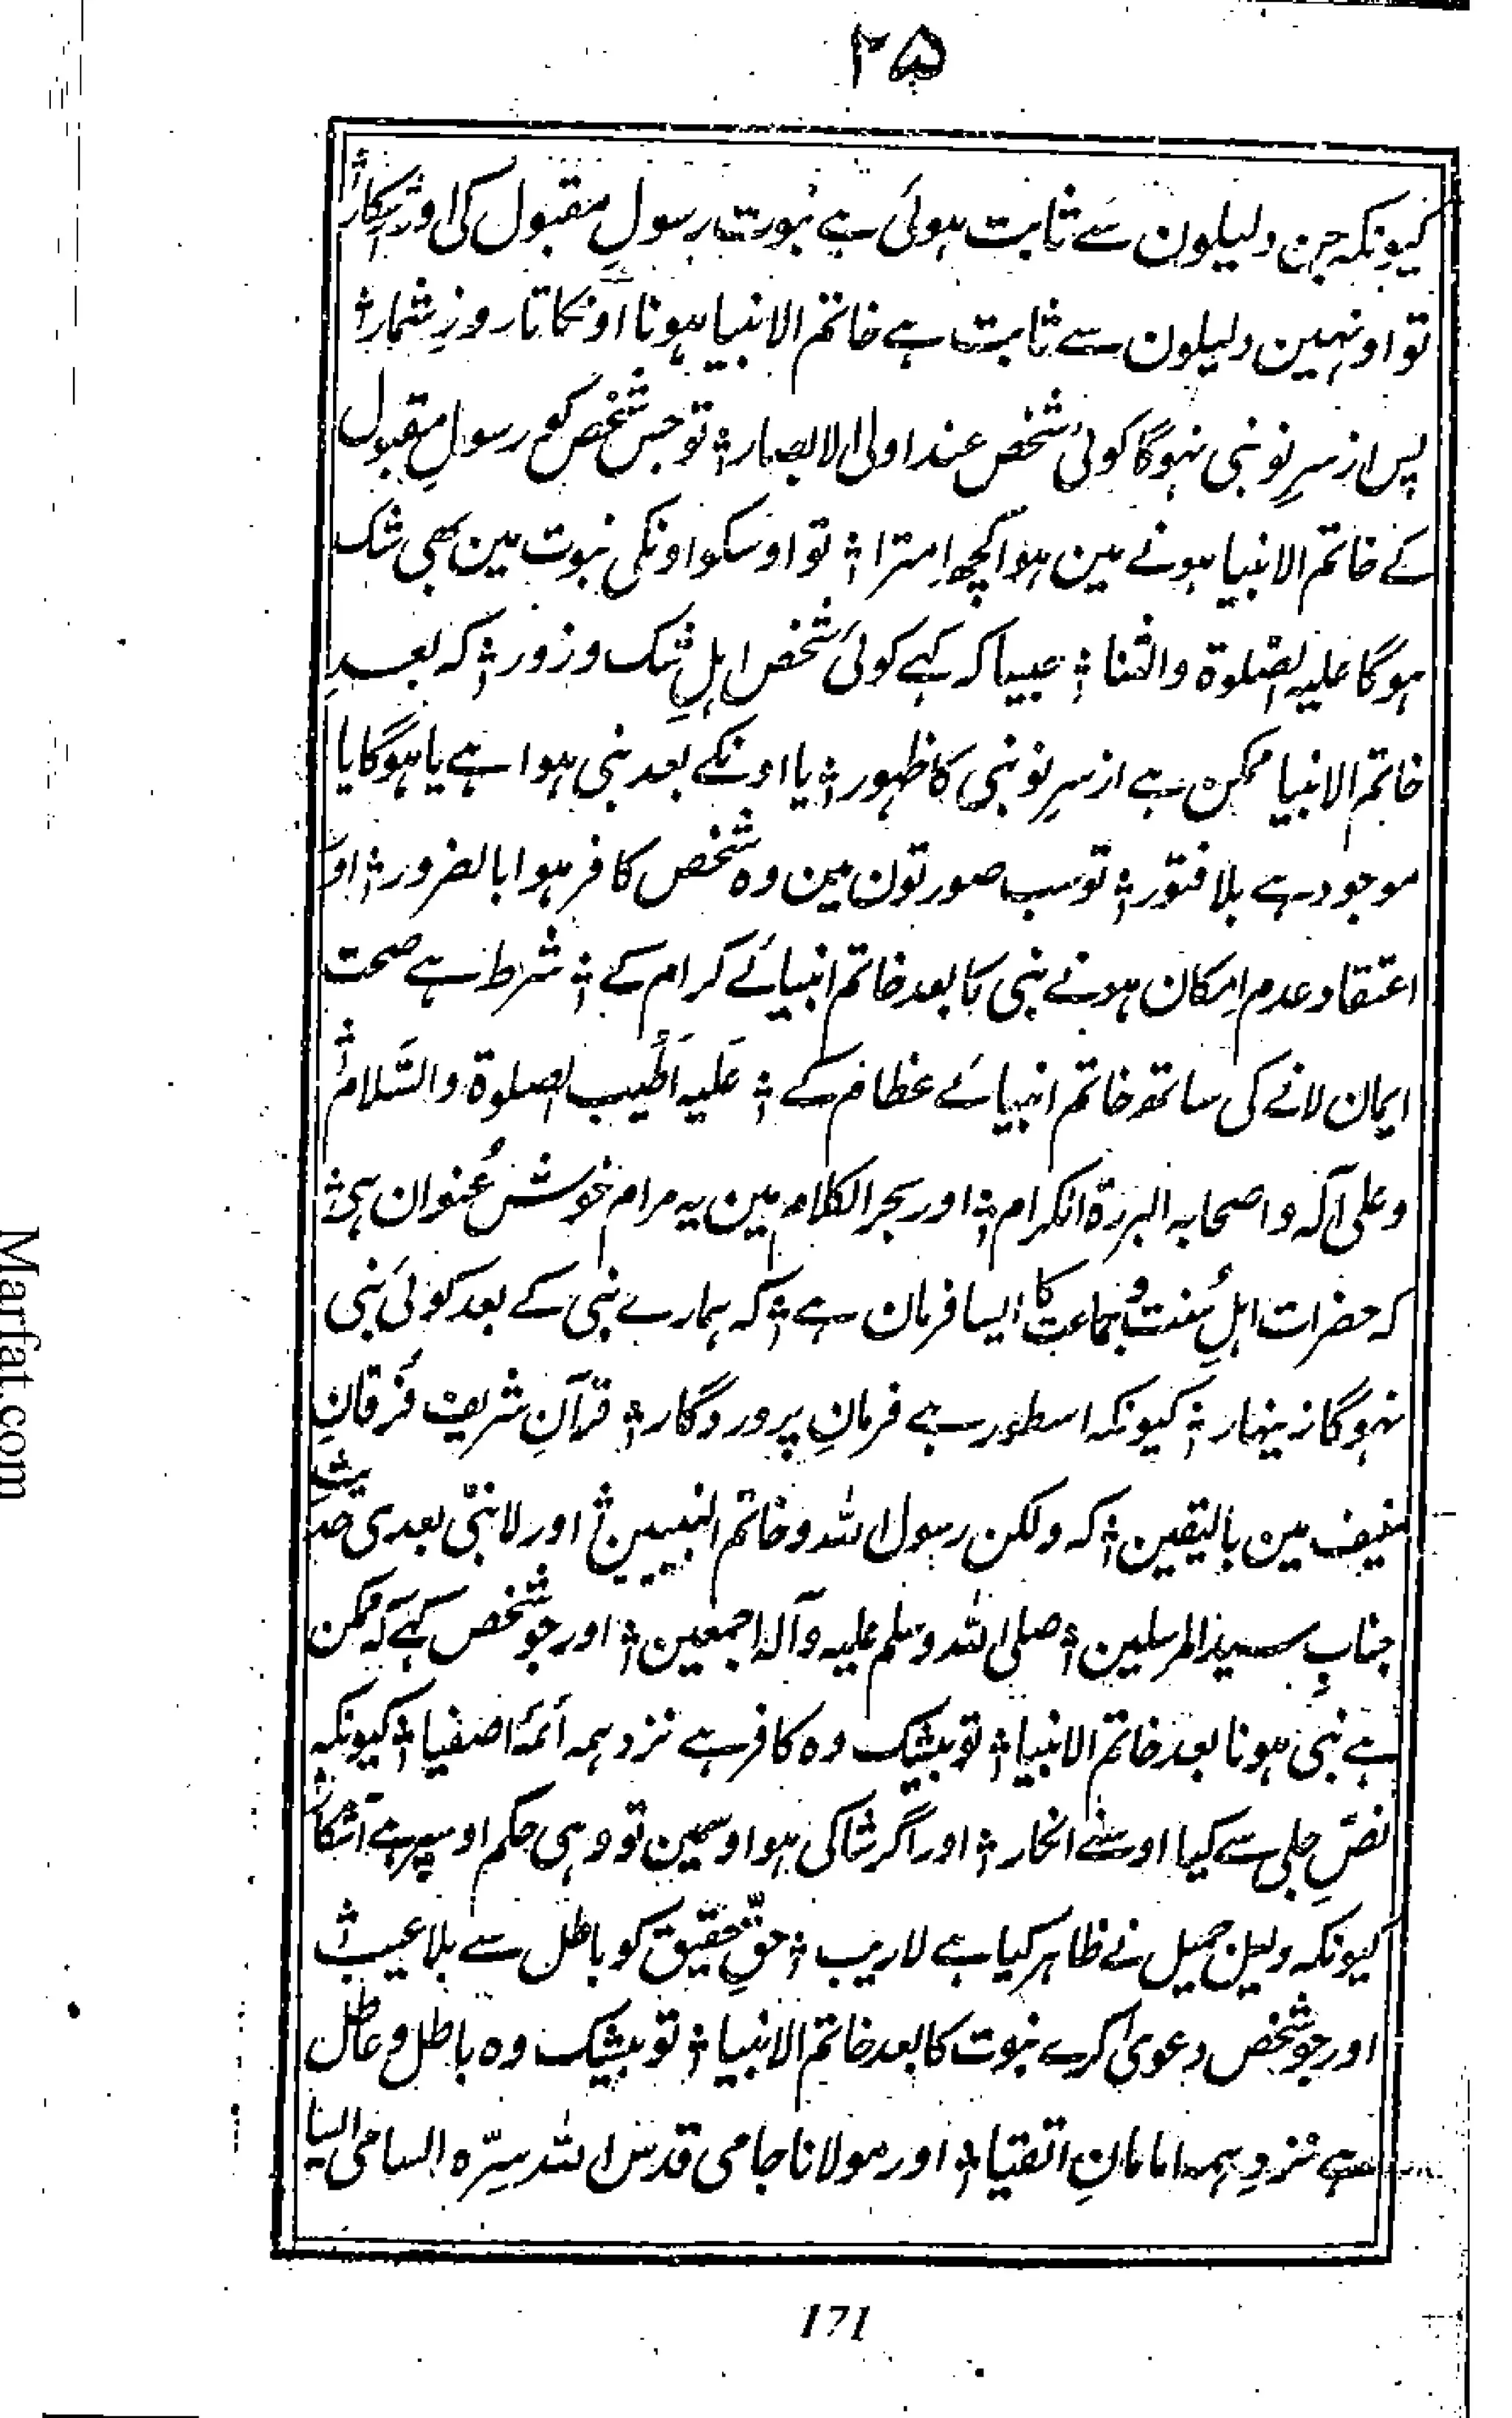 ۲۵
کیونکہ جن دلیلون سے ثابت ہوئی ہے نبوت رسولِ مقبول کی اور آشکارا؞
تو اونہین دلیلون سے ثابت ہے خاتم الانبیا ہونا اونکا تا روزِ شمار؞
پس از سرِ نو نبی نہوگا کوئی شخص عند اولی الابصار؞ تو جس شخص کو رسولِ مقبول
کے خاتم الانبیا ہونے مین ہوا کچھ اِمترا؞ تو اوسکو اونکی نبوت مین بھی شک
ہوگا علیہ الصلوۃ والثنا؞ جیسا کہ کہے کوئی شخص اہلِ شک و زور؞ کہ بعدِ
خاتم الانبیا ممکن ہے از سرِ نو نبی کا ظہور؞ یا اونکے بعد نبی ہوا ہے یا ہوگا یا
موجود ہے بلا فتور؞ تو سب صورتون مین وہ شخص کافر ہوا بالضرور؞ اور
اعتقاد عدم اِمکان ہونے نبی کا بعد خاتم انبیائے کرام کے؞ شرط ہے صحت
ایمان لانے کی ساتھ خاتم انبیائے عظام کے؞ عَلَیہ اَطیَبُ الصلوۃ والسَّلام؞
وعلی آلہ واصحابہ البررۃ الکرام؞ اور بحر الکلام مین یہ مرام خوش عُنوان ہی؞
کہ حضرات اہلِ سُنت و جماعت کا ایسا فرمان ہے؞ کہ ہمارے نبی کے بعد کوئی نبی
نہوگا زینہار؞ کیونکہ اسطور ہے فرمانِ پروردگار؞ قرآنِ شریف فُرقانِ
منیف مین بالیقین؞ کہ ولکن رسول اللہ وخاتم النبیین؞ اور لا نبیّ بعدی حدیثِ
جنابِ سید المرسلین؞ صلی اللہ وسلم علیہ وآلہ اجمعین؞ اور جو شخص کہے کہ ممکن
ہے نبی ہونا بعد خاتم الانبیا؞ تو بیشک وہ کافر ہے نزد ہمہ ائمۂ اصفیا؞ کیونکہ
نصِّ جلی سے کیا اوسنے انکار؞ اور اگر شاکی ہو اوسمین تو وہی حکم اوسپر ہے آشکار؞
کیونکہ دلیل جمیل نے ظاہر کیا ہے لاریب؞ حقِّ حقیق کو باطل سے بلا عیب؞
اور جو شخص دعوی کرے نبوت کا بعد خاتم الانبیا؞ تو بیشک وہ باطل و عاطل
ہے نزدِ ہمہ امامانِ اتقیا؞ اور مولانا جامی قدس اللہ سرّہ السامی الیسا
171
Marfat.com